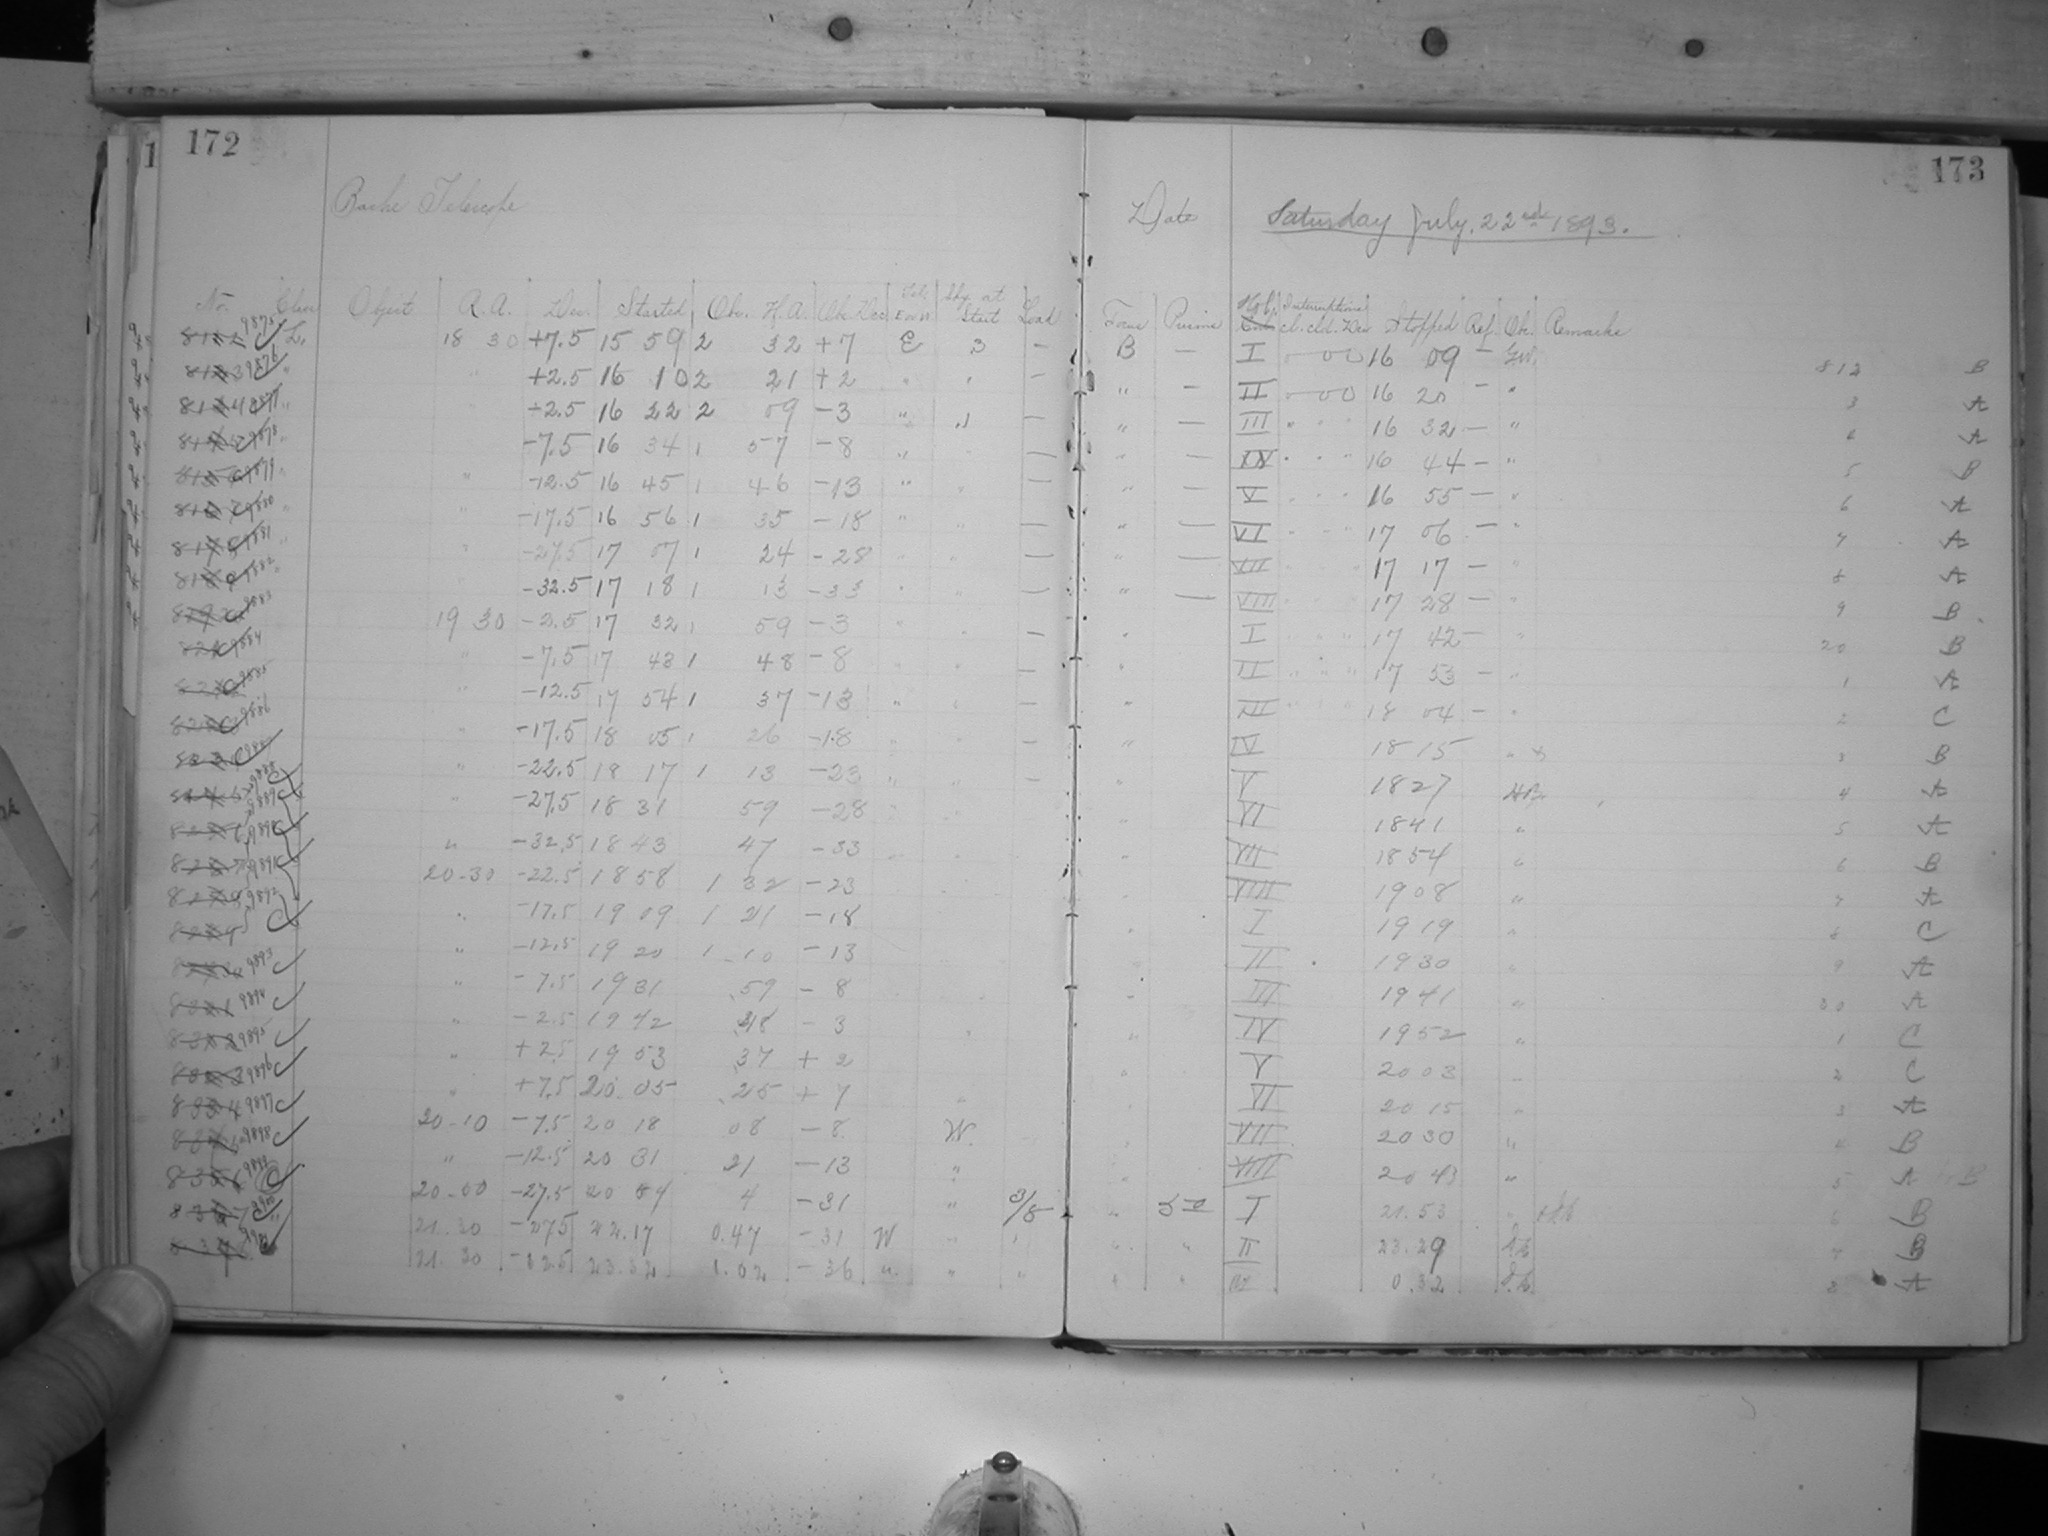 172
1
Bache Telescope
No. Class Object R.A. Dec. Started Obs. H.A. Obs. Dec. Tel. E or W Sky at Start Load
9875 L. 18 30 +7.5 15 59 2 32 +7 E 3 —
9876 " " +2.5 16 10 2 21 +2 " " —
9877 " +2.5 16 22 2 09 -3 " " —
9878 " -7.5 16 34 1 57 -8 " —
9879 " " -12.5 16 45 1 46 -13 " " —
9880 " " -17.5 16 56 1 35 -18 " " —
9881 " " -27.5 17 07 1 24 -28 " " —
9882 " " -32.5 17 18 1 13 -33 " " —
9883 19 30 -2.5 17 32 1 59 -3 " " —
9884 " -7.5 17 43 1 48 -8 " " —
9885 " -12.5 17 54 1 37 -13 " " —
9886 " -17.5 18 05 1 26 -18 " " —
9887 " -22.5 18 17 1 13 -23 " " —
9888 " -27.5 18 31 59 -28
9889 " -32.5 18 43 47 -33
9890 20-30 -22.5 18 58 1 32 -23
9891 " -17.5 19 09 1 21 -18
9892 " -12.5 19 20 1 10 -13
9893 " -7.5 19 31 59 -8
9894 " -2.5 19 42 48 -3
9895 " +2.5 19 53 37 +2
9896 " +7.5 20 05 25 +7
9897 20-10 -7.5 20 18 08 -8 W.
9898 " -12.5 20 31 21 -13 "
9899 20-00 -27.5 20 4 -31 " 3/8
9900 21.30 -27.5 22.17 0.47 -31 W "
9901 21.30 23.32 1.02 -36 " " "
173
Date Saturday July, 22nd 1893.
Focus Prisms Interruptions cl. cld. Dew Stopped Ref. Ob. Remarks
B — I 16 09 — 812 B
" — II 16 20 — " 3 A
" — III " " " 16 32 — " 4 A
" — IV " " " 16 44 — " 5 B
" — V " " " 16 55 — " 6 A
" — VI " " " 17 06 — " 7 A
" — VII " " 17 17 — " 8 A
" — VIII " " 17 28 — " 9 B
" I " " " 17 42 — " 20 B
" II " " " 17 53 — " 1 A
" III " " " 18 04 — " 2 C
" IV 18 15 " 3 B
" V 18 27 4 A
" VI 18 41 " 5 A
" VII 18 54 " 6 B
" VIII 19 08 " 7 A
" I 19 19 " 8 C
" II 19 30 " 9 A
" III 19 41 " 30 A
" IV 19 52 " 1 C
" V 20 03 " 2 C
" VI 20 15 " 3 A
" VII 20 30 " 4 B
" VIII 20 43 " 5 A B
" I 21.53 " 6 B
" " II 23.29 7 B
" " III 0.32 8 A